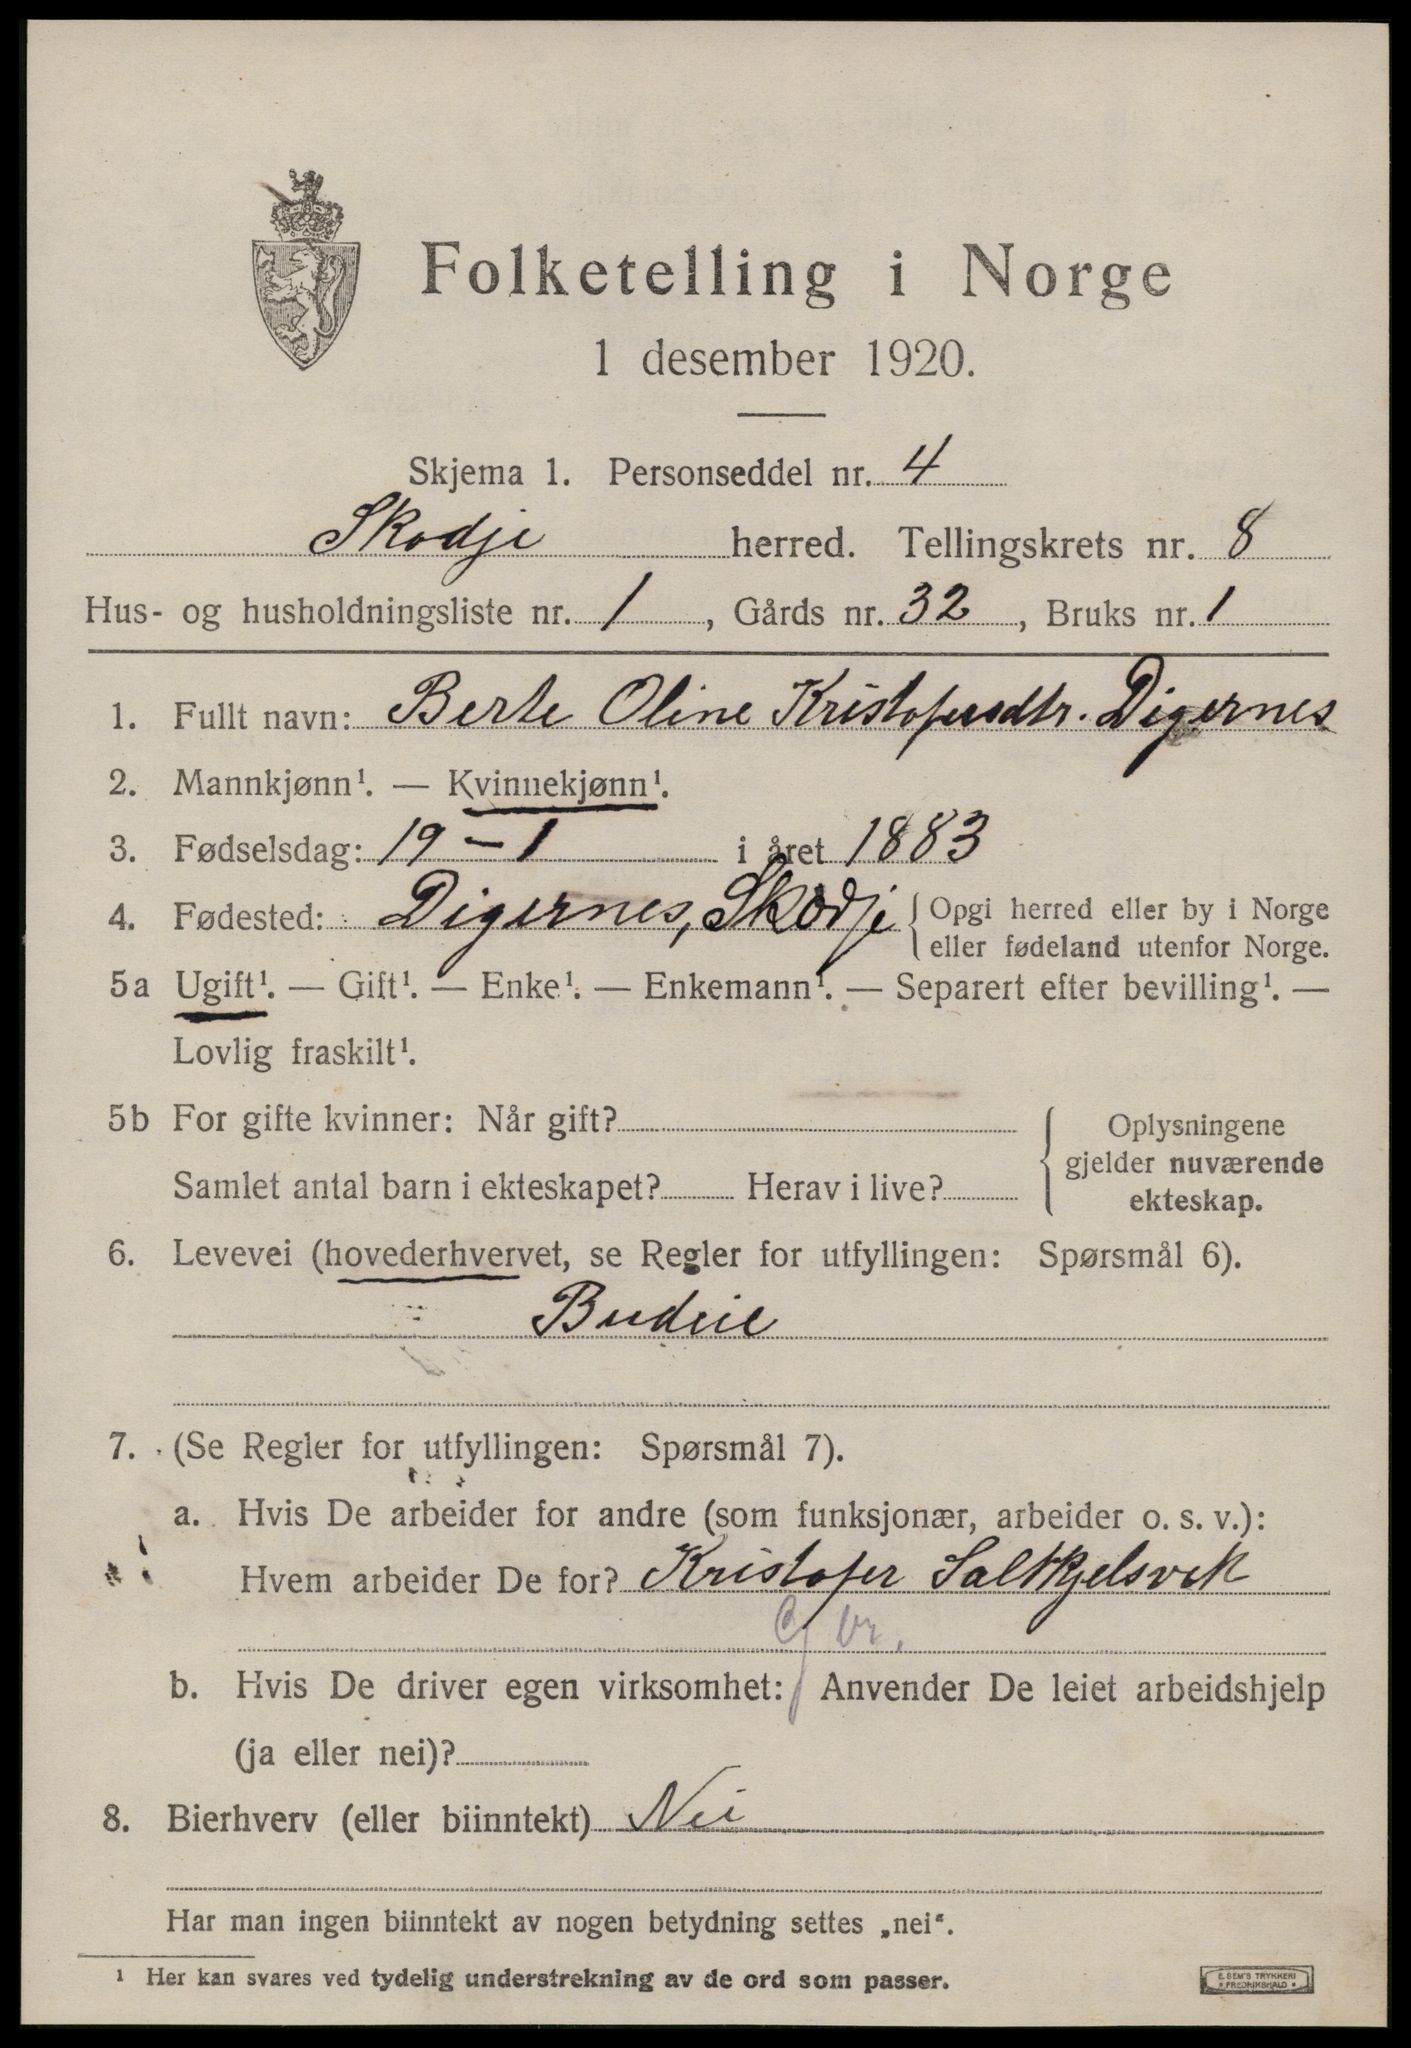 Folketelling i Norge
1 desember 1920.
Skjema 1. Personseddel nr. 4
Skodje herred. Tellingskrets nr. 8
Hus- og husholdningsliste nr. 1, Gårds nr. 32, Bruks nr. 1
1. Fullt navn: Berte Oline Kristofersdtr. Digernes
2. Mannkjønn¹. — Kvinnekjønn¹.
3. Fødselsdag: 19 – 1 i året 1883
4. Fødested: Digernes, Skodje { Opgi herred eller by i Norge
eller fødeland utenfor Norge.
5a Ugift¹. — Gift¹. — Enke¹. — Enkemann¹. — Separert efter bevilling¹. —
Lovlig fraskilt¹.
5b For gifte kvinner: Når gift?
Samlet antal barn i ekteskapet? Herav i live?
Oplysningene
gjelder nuværende
ekteskap.
6. Levevei (hovederhvervet, se Regler for utfyllingen: Spørsmål 6).
Budeie
7. (Se Regler for utfyllingen: Spørsmål 7).
a. Hvis De arbeider for andre (som funksjonær, arbeider o. s. v.):
Hvem arbeider De for? Kristofer Saltkjelsvik
b. Hvis De driver egen virksomhet: Anvender De leiet arbeidshjelp
(ja eller nei)?
8. Bierhverv (eller biinntekt) Nei
Har man ingen biinntekt av nogen betydning settes „nei".
¹ Her kan svares ved tydelig understrekning av de ord som passer.
E. SEM'S TRYKKERI
FREDRIKSHALD